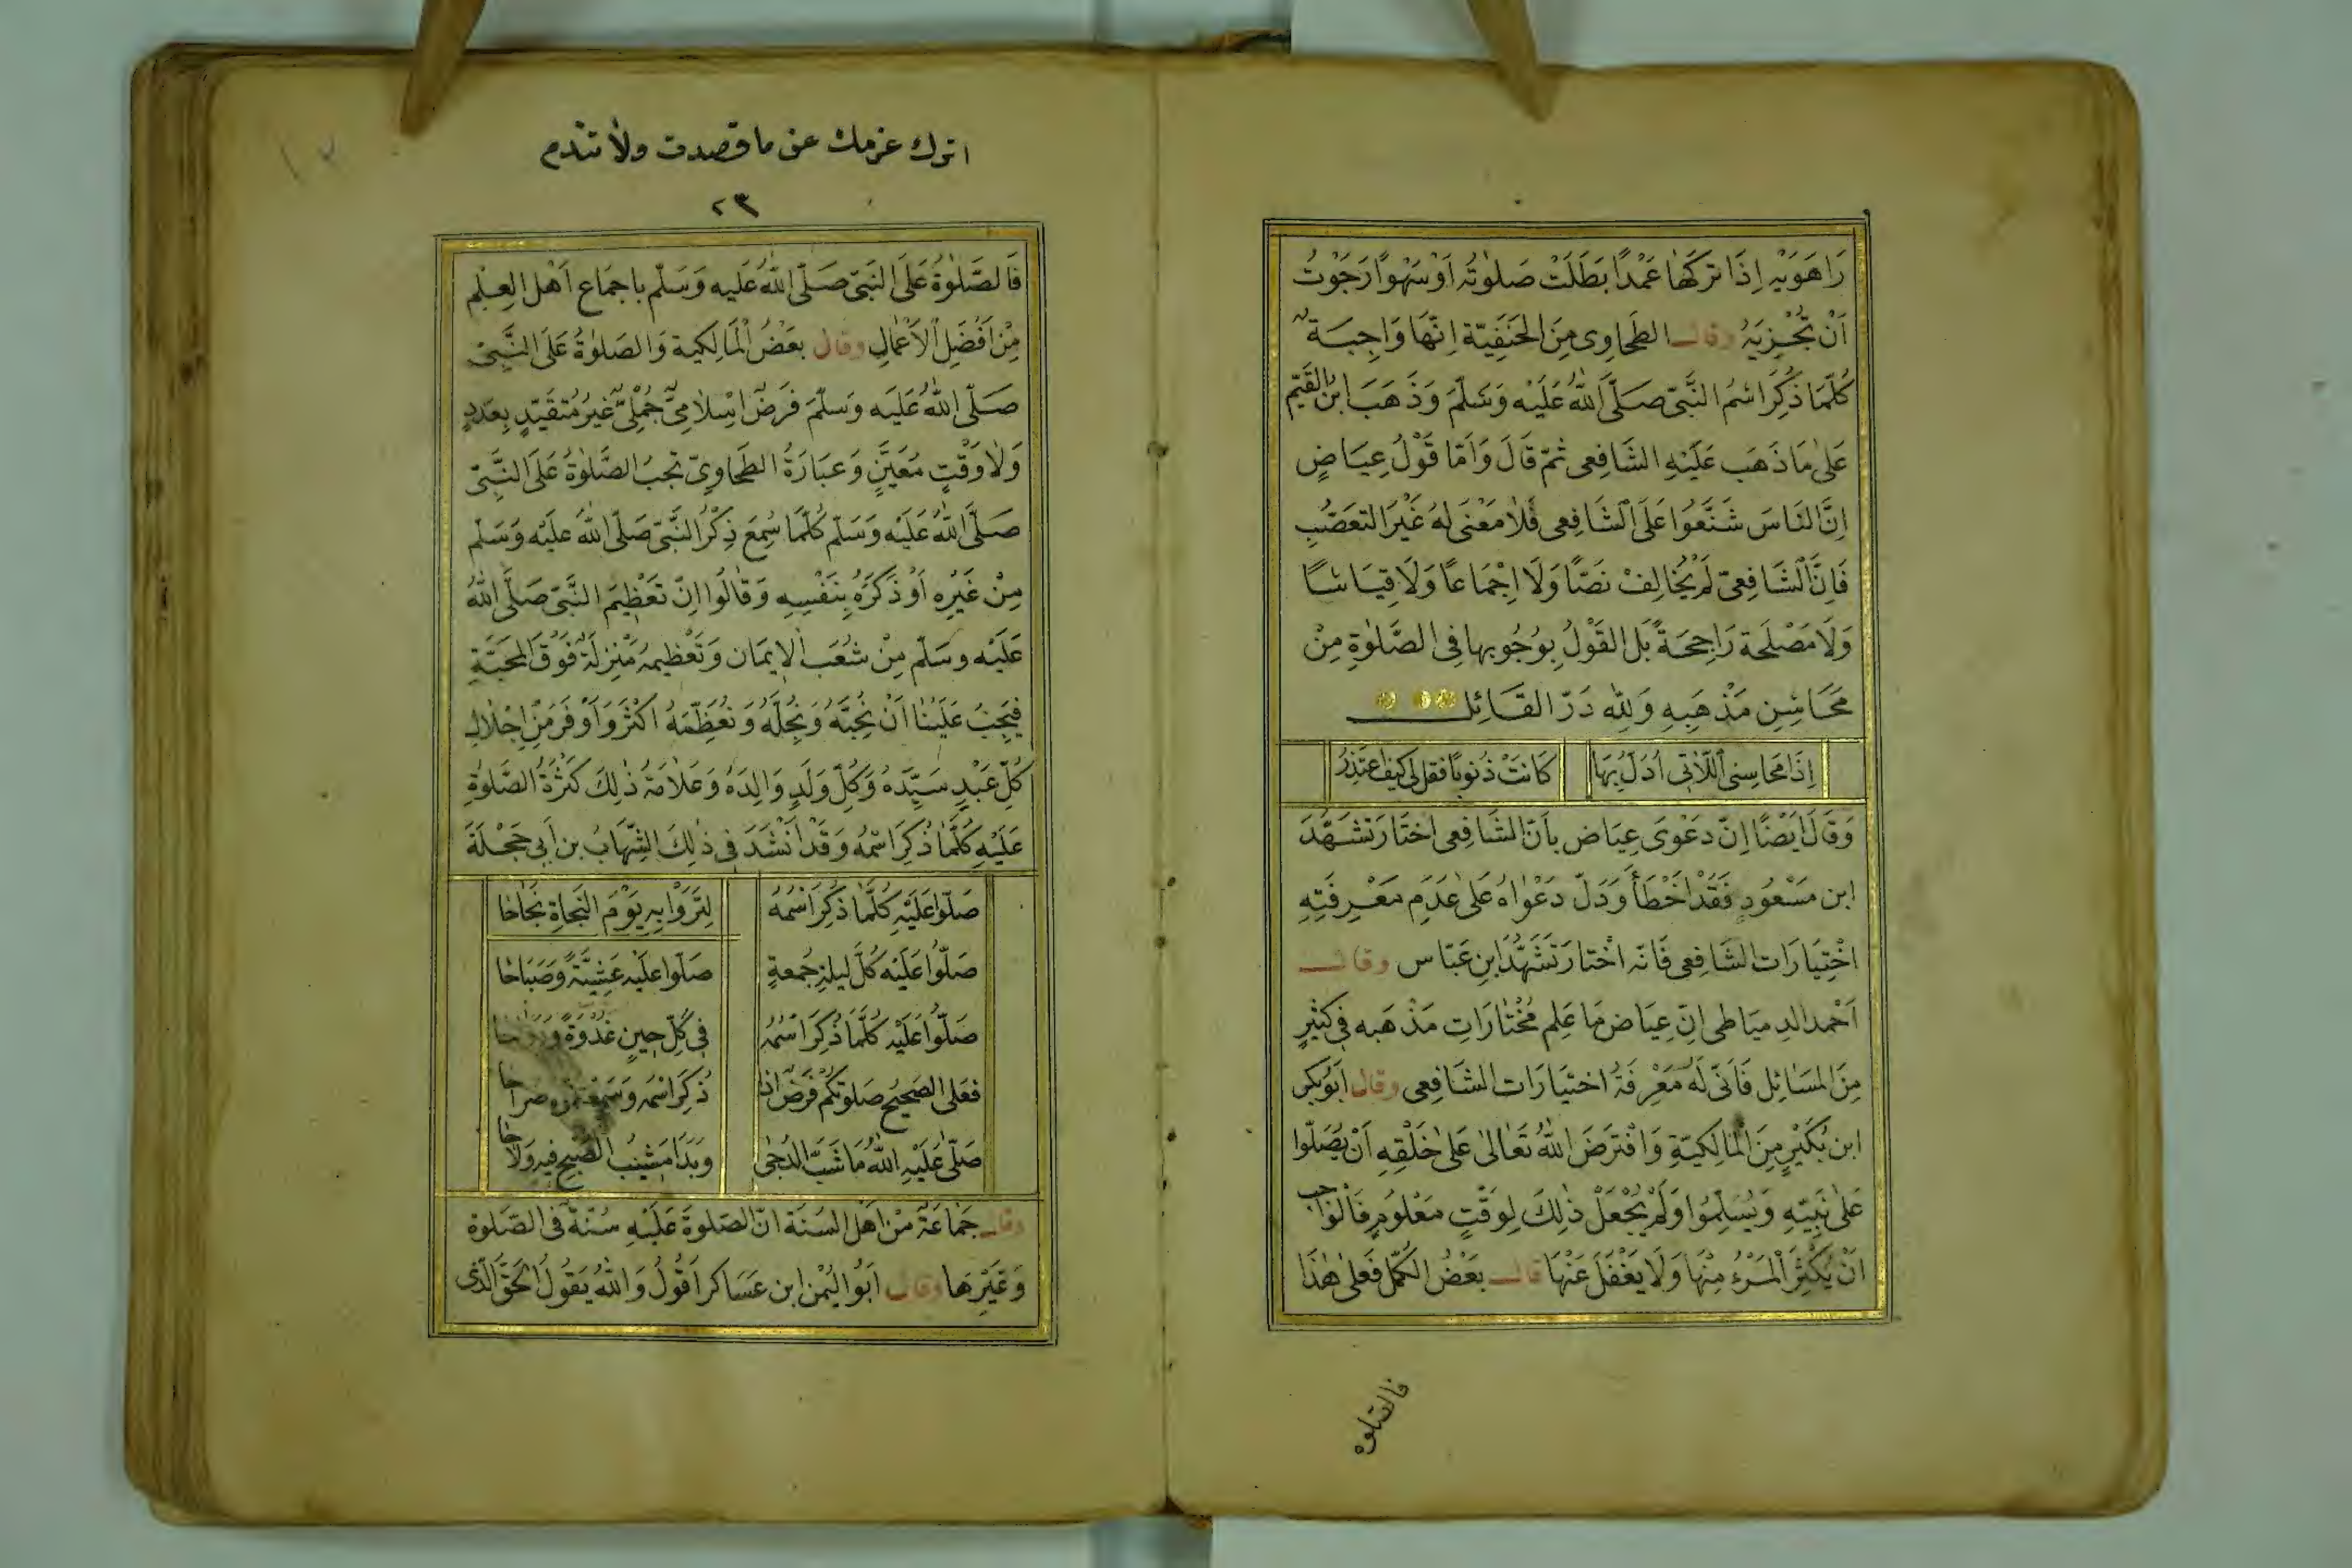 رَاهَوَيْهِ اِذَا تَرَكَهَا عَمْدًا بَطَلَتْ صَلٰوتُهُ اَوْ سَهْوًا رَجَوْتُ
اَنْ تُجْزِيَهُ وقال الطَحَاوِى مِنَ الحَنَفِيّة اِنَّهَا وَاجِبَة
كُلَّمَا ذُكِرَ اسْمُ النَّبِىّ صَلَّى اللّٰهُ عَلَيْهِ وَسَلَّمَ وَذَهَبَ ابنُ القَيِّم
عَلىٰ مَا ذَهَبَ عَلَيْهِ الشَافِعِى ثُمّ قَالَ وَاَمّا قَوْلُ عِيَاضٍ
اِنَّ النَاسَ شَنَّعُوا عَلَى الشَافِعِى فَلاَ مَعْنىَ لَهُ غَيْرَ التَعَصُّبِ
فَاِنَّ الشَافِعِىّ لَمْ يُخَالِفْ نَصًّا وَلَا اِجْمَاعًا وَلَا قِيَاسًا
وَلَا مَصْلَحَة رَاجِحَةً بَلِ القَوْلُ بِوُجُوبِهَا فِى الصَّلٰوةِ مِنْ
مَحَاسِنِ مَذْهَبِهِ وَلِلّٰهِ دَرّ القَائِل
اِذَا مَحَاسِنِى اللّاتِى اُدَلُّ بِهَا كَانَتْ ذُنُوبًا فَقُل لِى كَيْفَ اعْتَذِرُ
وَقَالَ اَيْضًا اِنّ دَعْوَى عِيَاض بِاَنّ الشَافِعِى اخْتَارَ تَشَهُّدَ
ابن مَسْعُودٍ فَقَدْ اَخْطَأ وَدَلّ دَعْوَاهُ عَلىٰ عَدَمِ مَعْرِفَتِهِ
اخْتِيَارَات الشَافِعِى فَانّه اخْتارَ تَشَهُّدَ ابنِ عَبّاس وقال
اَحْمد الدِميَاطِى اِنّ عِيَاض مَا عَلِم مُخْتَارَاتِ مَذْهَبه فِى كَثِيرٍ
مِنَ المَسَائِل فَاَنّى لَهُ مَعْرِفَةُ اختيَارَات الشَافِعِى وقال اَبُو بَكر
ابن بُكَيْرٍ مِنَ المَالِكِيّةِ وَافْتَرَضَ اللّٰهُ تَعَالىٰ عَلىٰ خَلْقِهِ اَنْ يُصَلّوا
عَلىٰ نَبِيّهِ وَيُسَلِّمُوا وَلَمْ يُجْعَلْ ذٰلِكَ لِوَقْتٍ مَعْلُومٍ فَالْوَاجب
اَنْ يُكْثِرَ الْمَرْءُ مِنْهَا وَلَا يَغْفَلَ عَنْهَا قال بَعْضُ الكُمَّل فَعَلىٰ هٰذَا
فالصّلوة
اترك عزمك عن ما قصدت ولا تندم
٢٣
فَالصّلٰوةُ عَلَى النَبِىّ صَلّى اللّٰهُ عَلَيه وَسَلّم بِاجمَاع اَهْل العِلْم
مِنْ اَفْضَلِ الاَعْمَالِ وقال بَعْضُ الْمَالِكِية وَالصَلوٰةُ عَلَى النَّبِىّ
صَلّى اللّٰهُ عَلَيه وَسَلّمَ فَرَضٌ اِسْلَامِىٌّ جُمْلِىٌّ غَيرُ مُتَقَيّدٍ بِعَدَدٍ
وَلاَ وَقْتٍ مُعَيَّنٍ وَعِبَارَةُ الطَحَاوِىّ تَجبُ الصَّلٰوةُ عَلَى النَّبِىّ
صَلَّى اللّٰهُ عَلَيْه وَسَلّم كُلَّمَا سُمِعَ ذِكْرُ النَّبِىّ صَلّى اللّٰهُ عَلَيْه وَسَلّم
مِنْ غَيْرِهِ اَوْ ذَكَرَهُ بِنَفْسِهِ وَقَالُوا اِنّ تَعْظِيمَ النَّبِىّ صَلَّى اللّٰهُ
عَلَيْه وسَلّم مِنْ شُعَبِ الاِيمَان وَتَعْظيمهُ مَنْزِلَةً فَوْقَ المَحَبّةِ
فيَجِبُ عَلَيْنَا اَنْ نُحِبَّهُ وَنُجِلّهُ وَنُعَظِّمَهُ اكْثَرَ وَاَوْفَرَ مِنْ اِجْلَالِ
كُلِّ عَبْدٍ سَيِّدَهُ وَكُلِّ وَلَدٍ وَالِدَهُ وَعَلَامَةُ ذٰلِكَ كَثْرَةُ الصَّلٰوةِ
عَلَيْهِ كُلَّمَا ذُكِرَ اسْمُهُ وَقَدْ اَنْشَدَ فى ذٰلِكَ الشّهَابُ بن اَبِى حَجْلَةَ
صَلّوا عَلَيْهِ كُلَّمَا ذُكِرَ اسْمُهُ لِتَرَوْا بِهِ يَوْمَ النَجَاةِ نَجَاحَا
صَلّوا عَلَيْه كُلَّ ليلةِ جُمعةٍ صَلّوا عَلَيْه عَشِيَّةً وَصَبَاحَا
صَلّوا عَلَيْه كُلَّمَا ذُكِرَ اسْمُهُ فِى كُلِّ حِينٍ غُدْوَةً وَرَوَاحَا
فَعَلى الصَحِيحِ صَلوتكُم فَرْضٌ اذَا ذُكِرَ اسْمه وَسَمِعْتمُوهُ صُراحَا
صَلّى عَلَيْهِ اللّٰهُ مَا شَبَّ الدُجٰى وَبَدَا مَشِيبُ الصُّبحِ فِيهِ وَلَاحَا
وقال جَمَاعَةٌ مِنْ اهْلِ السُنَّة انّ الصَلوةَ عَلَيْهِ سُنّةٌ فى الصّلوة
وَغَيْرِهَا وقال اَبُو اليُمْن ابن عَسَاكر اَقُولُ وَاللّٰهُ يَقُولُ الحَقّ الّذى